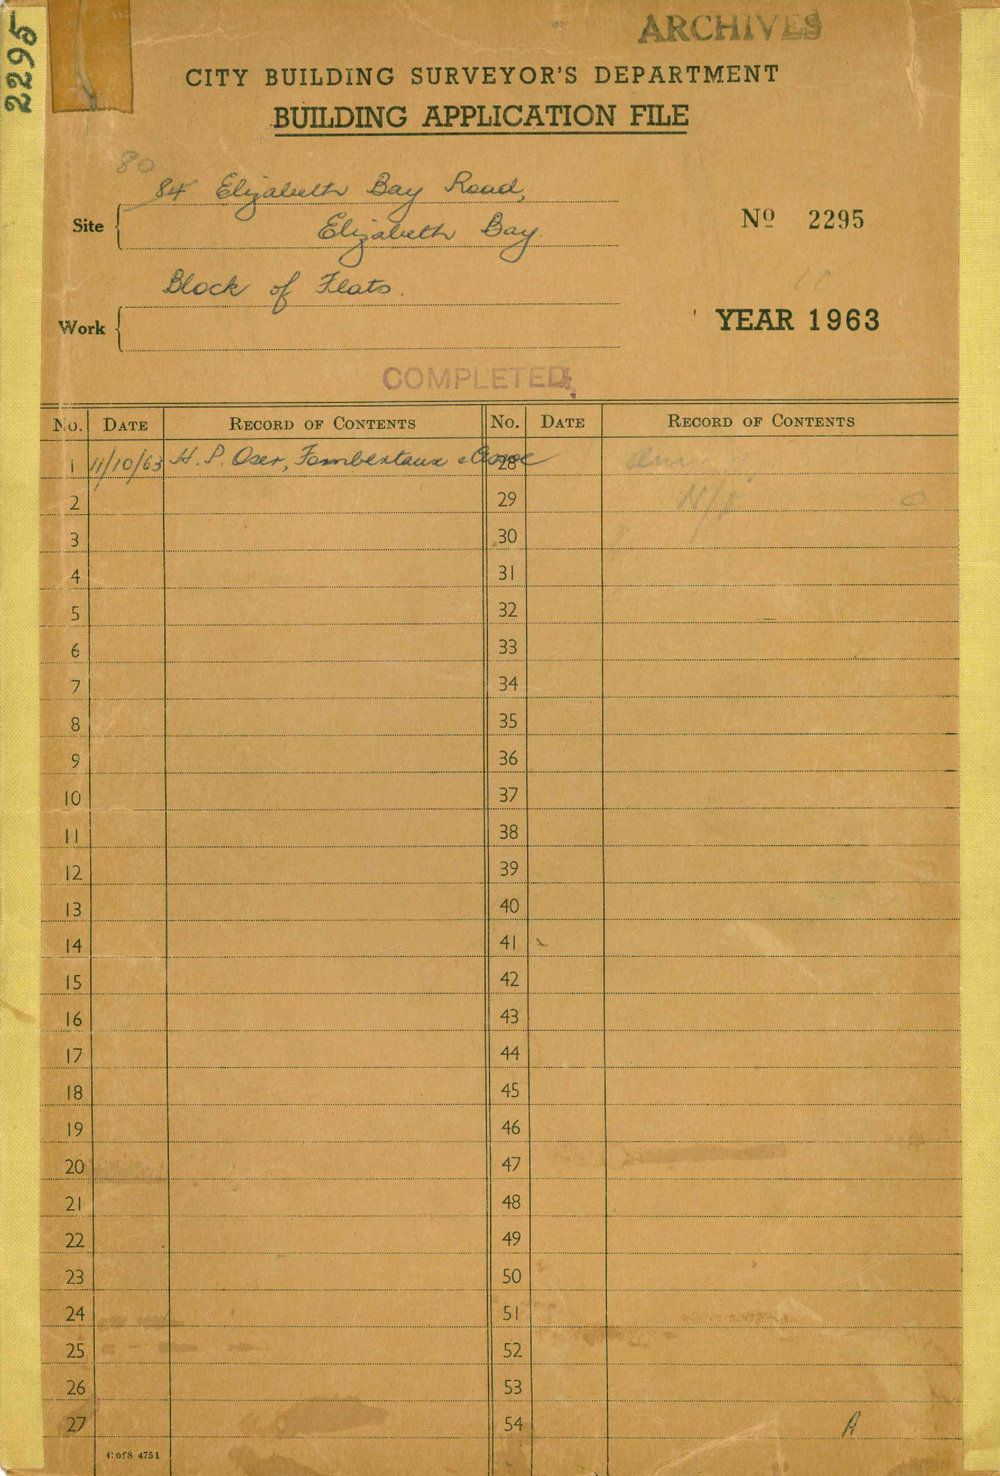 2295
ARCHIVES
CITY BUILDING SURVEYOR'S DEPARTMENT
BUILDING APPLICATION FILE
80
84 Elizabeth Bay Road,
Site
Elizabeth Bay.
No 2295
Block of Flats.
Work
YEAR 1963
COMPLETED
No. DATE RECORD OF CONTENTS No. DATE RECORD OF CONTENTS
1 11/10/63 H. P. Oser, Fombertaux & Assoc 28
2 29
3 30
4 31
5 32
6 33
7 34
8 35
9 36
10 37
11 38
12 39
13 40
14 41
15 42
16 43
17 44
18 45
19 46
20 47
21 48
22 49
23 50
24 51
25 52
26 53
27 54
A
C of S 4751